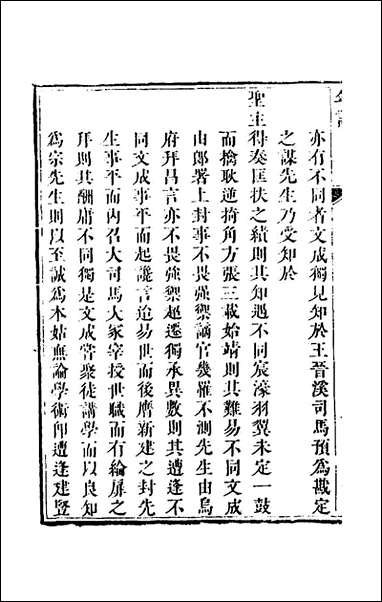 亦有不同者文成獨見知於王晉溪司馬預為戡定
之謀先生乃受知於
聖主得奏匡扶之績則其知遇不同宸濠羽翼未定一鼓
而擒耿逆掎角方張三載始靖則其難易不同文成
由郎署上封事不畏強禦謫官幾罹不測先生由烏
府拜昌言亦不畏強禦超遷獨承異數則其遭逢不
同文成事平而起讒言迨易世而後膺新建之封先
生事平而內召大司馬大冢宰授世職而有綸扉之
拜則其酬庸不同獨是文成嘗聚徒講學而以良知
為宗先生則以至誠為本姑無論學術仰遭逢建豎